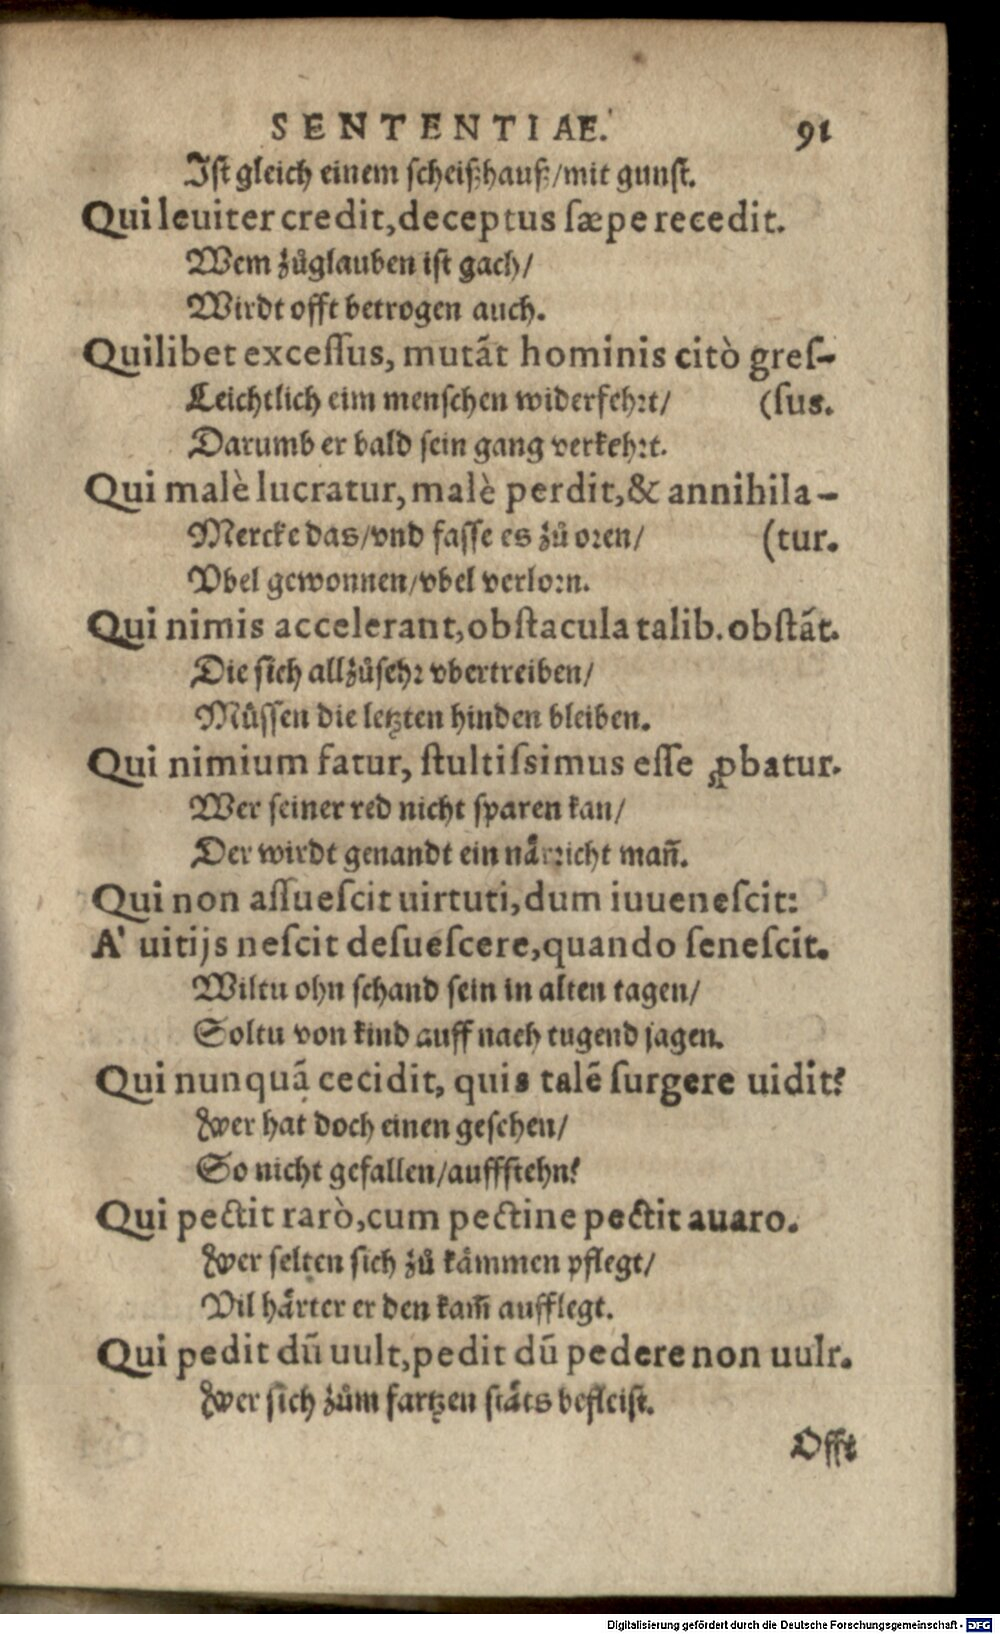 SENTENTIAE. 91
Ist gleich einem scheißhauß/mit gunst.
Qui leuiter credit, deceptus sæpe recedit.
Wem zůglauben ist gach/
Wirdt offt betrogen auch.
Quilibet excessus, mutãt hominis citò gres-
Leichtlich eim menschen widerfehrt/ (sus.
Darumb er bald sein gang verkehrt.
Qui malè lucratur, malè perdit, & annihila-
Mercke das/vnd fasse es zů oren/ (tur.
Vbel gewonnen/vbel verlorn.
Qui nimis accelerant, obstacula talib. obstãt.
Die sich allzůsehr vbertreiben/
Můssen die letzten hinden bleiben.
Qui nimium fatur, stultissimus esse ꝓbatur.
Wer seiner red nicht sparen kan/
Der wirdt genandt ein nårricht mañ.
Qui non assuescit uirtuti, dum iuuenescit:
A' uitijs nescit desuescere, quando senescit.
Wiltu ohn schand sein in alten tagen/
Soltu von kind auff nach tugend jagen.
Qui nunquã cecidit, quis talẽ surgere uidit?
Wer hat doch einen gesehen/
So nicht gefallen/auffstehn?
Qui pectit rarò, cum pectine pectit auaro.
Wer selten sich zů kåmmen pflegt/
Vil hårter er den kam̃ aufflegt.
Qui pedit dũ uult, pedit dũ pedere non uult.
Wer sich zům fartzen ståts befleist.
Offt
Digitalisierung gefördert durch die Deutsche Forschungsgemeinschaft - DFG